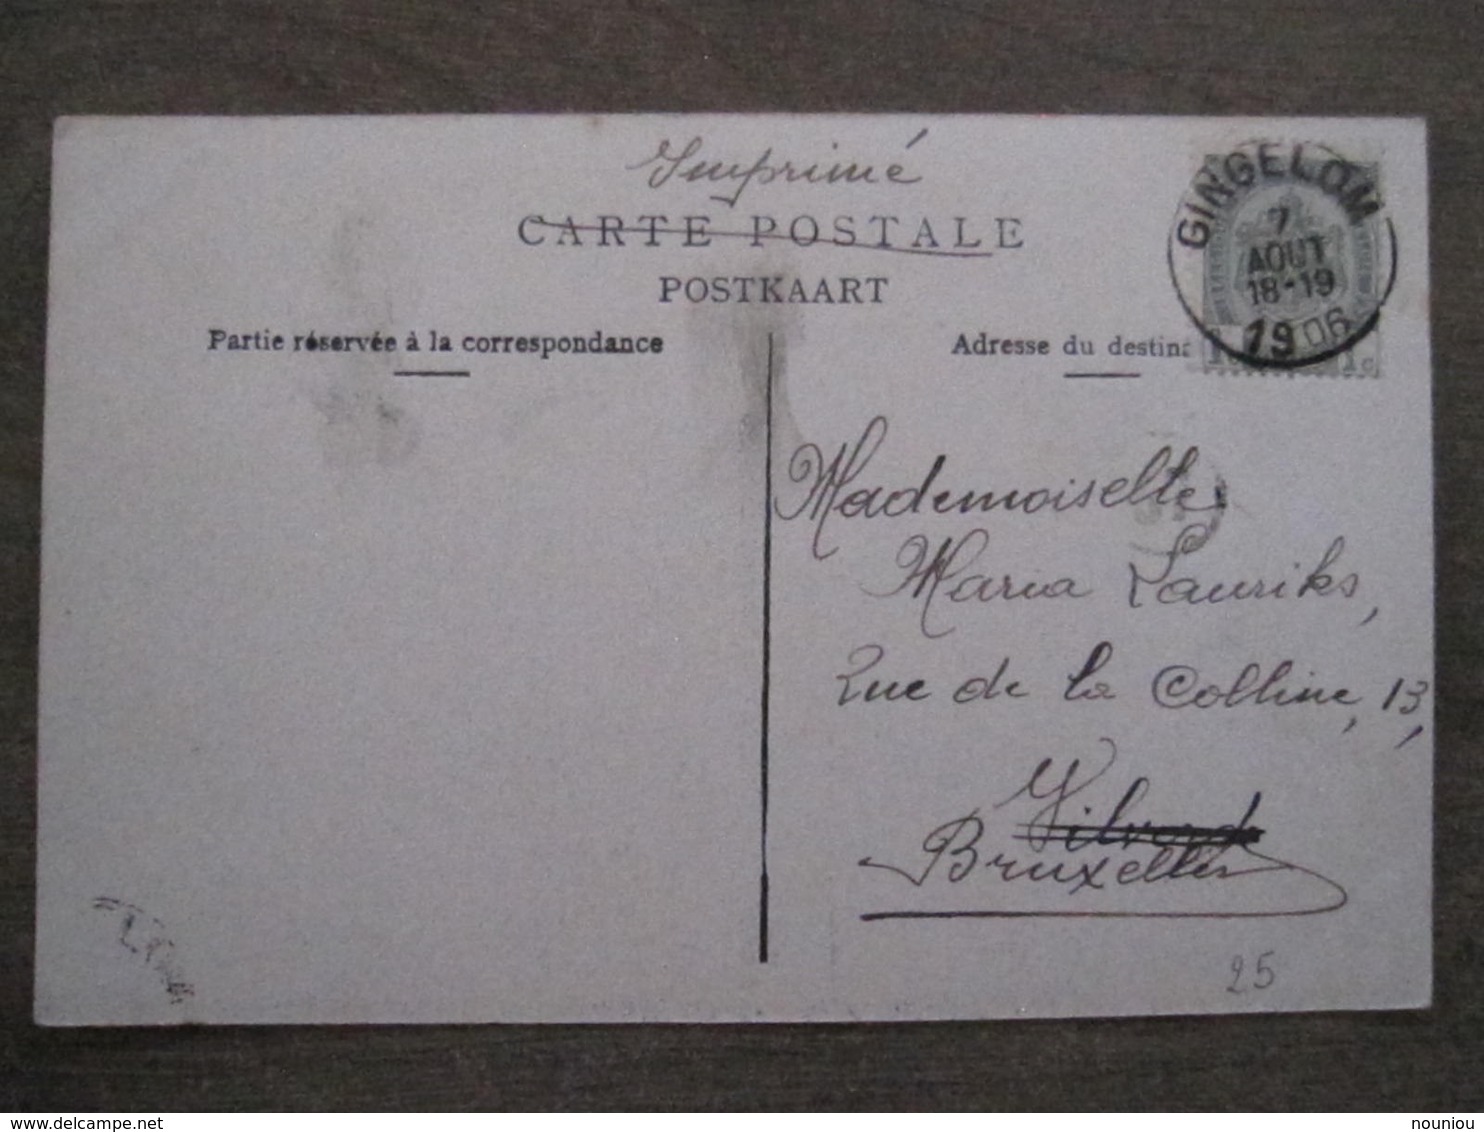 Imprimé
CARTE POSTALE
POSTKAART
Partie réservée à la correspondance
Adresse du destin
GINGELOM
7
AOUT
18-19
1906
1c
Mademoiselle
Maria Lauriks,
Rue de la Colline, 13,
Vilvorde
Bruxelles
25
delcampe.net
nouniou